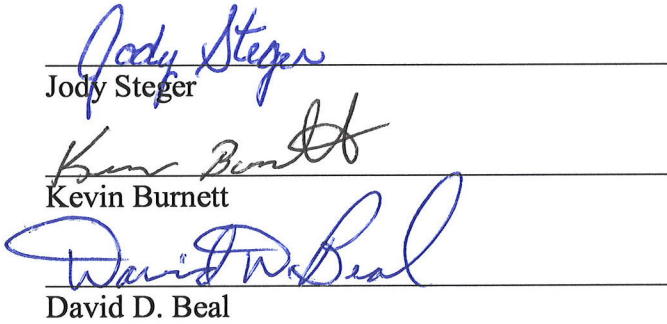 Jody Steger
Jody Steger
Kevin Burnett
Kevin Burnett
David D. Beal
David D. Beal